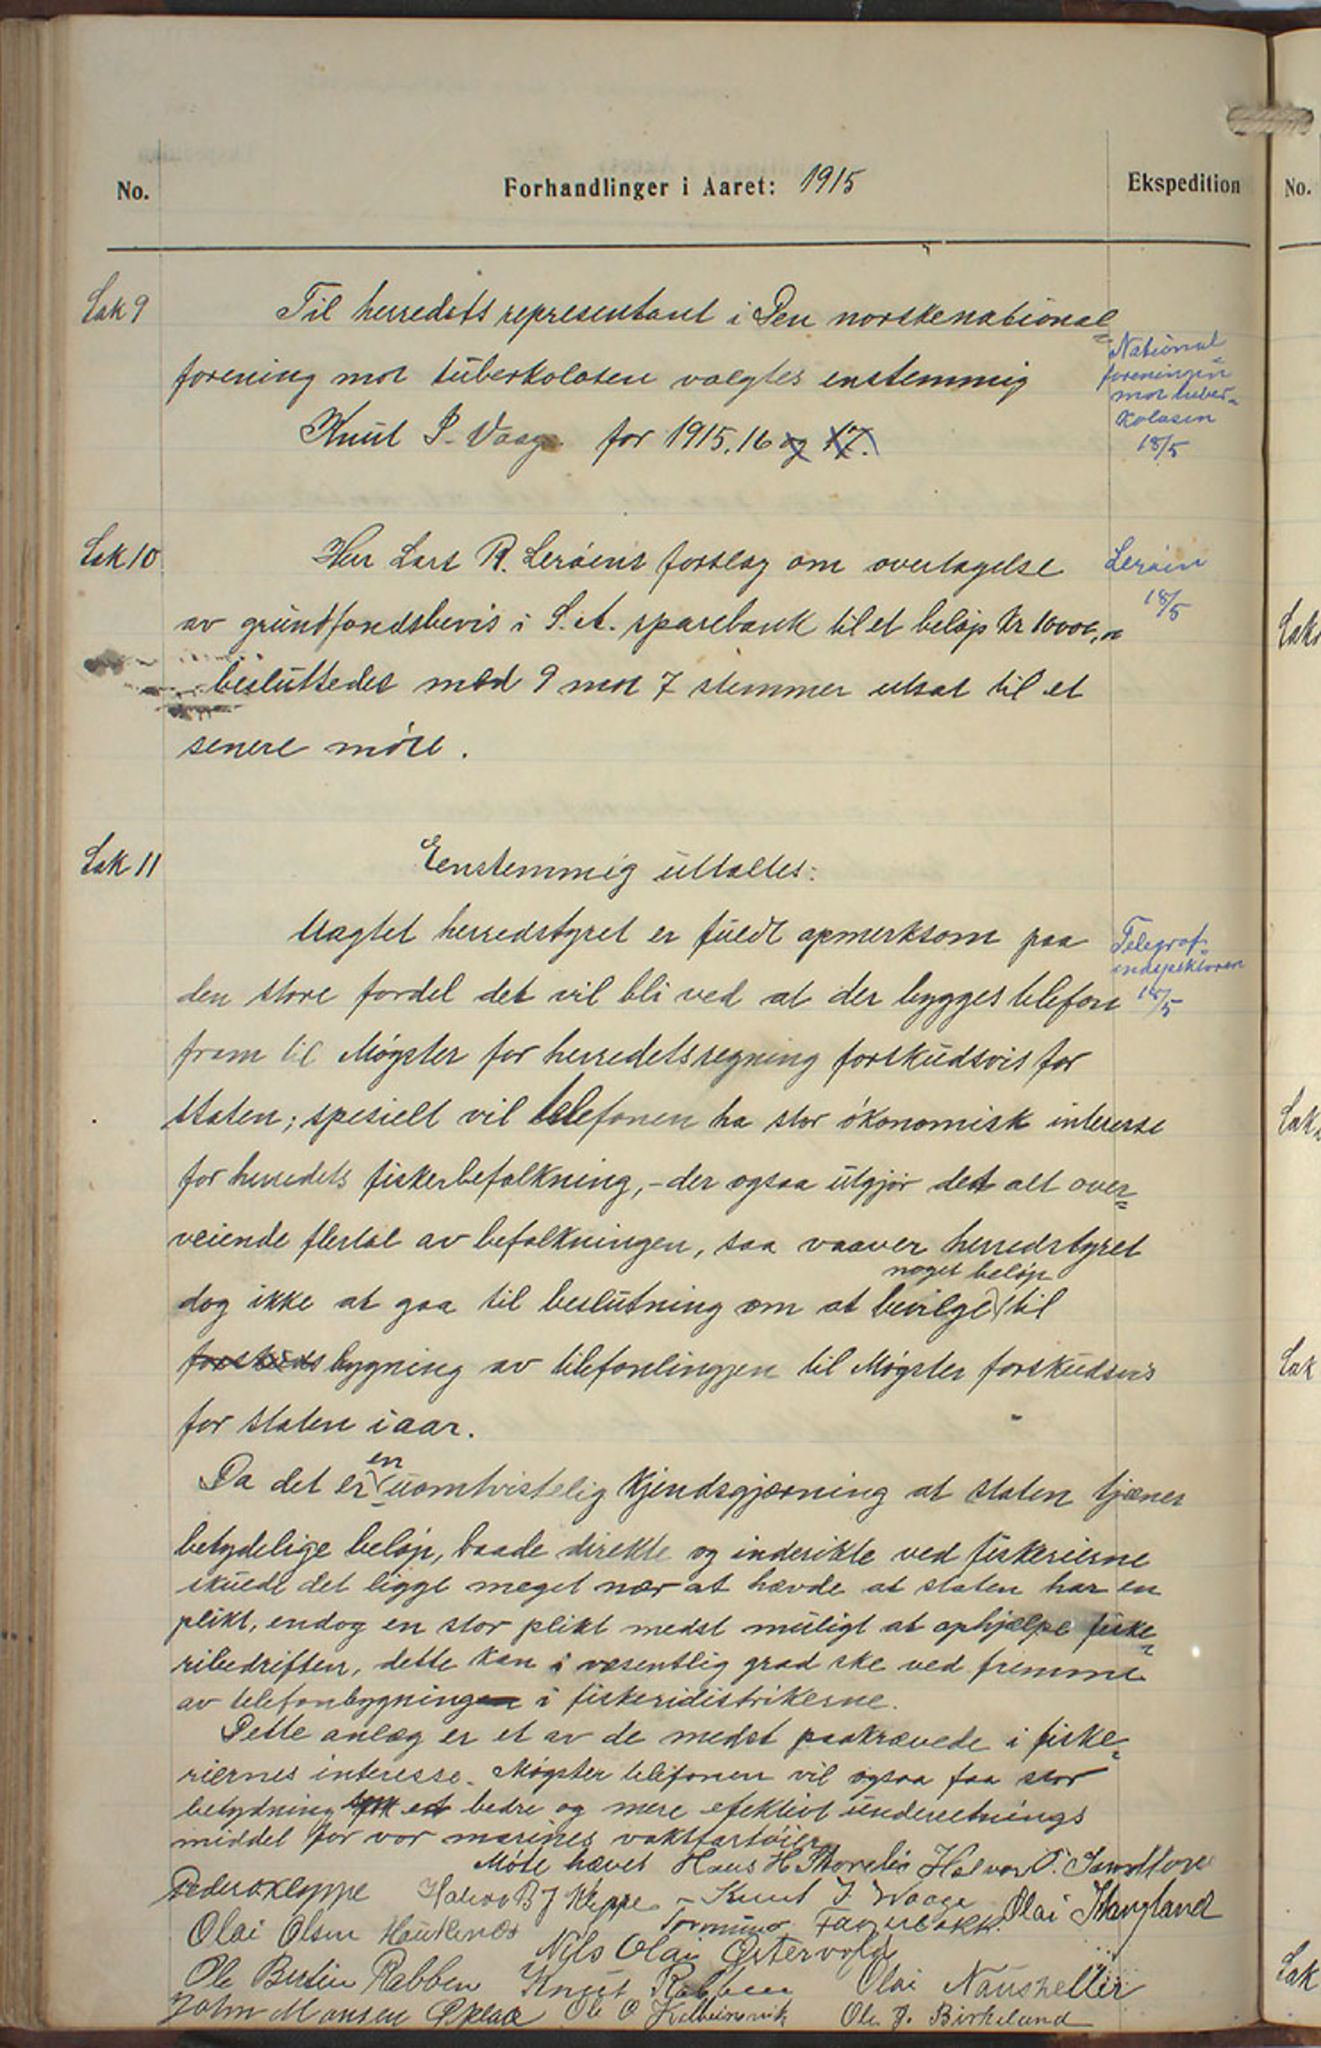 No.
Forhandlinger i Aaret: 1915
Ekspedition
No.
Sak 9
Til herredets representant i Den norske national=
forening mot tuberkolosen valgtes enstemmig
Knut P. Vaage for 1915, 16 og 17.
National=
foreningen
mot tuber=
kolosen
18/5
Sak 10
Herr Lars R. Leröens forslag om overtagelse
av grundfondsbevis i S. A. sparebank til et beløp kr 10000,
besluttedes med 9 mot 7 stemmer utsat til et
senere möte.
Leröen
18/5
Sak 11
Eenstemmig uttaltes:
Uagtet herredstyret er fuldt opmerksom paa
den store fordel det vil bli ved at der bygges telefon
fram til Møgster for herredets regning forskudsvis for
staten; spesielt vil telefonen ha stor ökonomisk interesse
for herredets fiskerbefolkning, - der ogsaa utgjör det alt over=
veiende flertal av befolkningen, saa vaaver herredstyret
dog ikke at gaa til beslutning om at bevilge noget beløp til
forskuds bygning av telefonlingjen til Møgster forskudsvis
for staten i aar.
Telegraf=
indspektören
18/5
Da det er en uomtvistelig kjendsgjærning at staten tjæner
betydelige beløp, baade direkte og inderikte ved fiskerierne
skulde det ligge meget nær at hævde at staten har en
plikt, endog en stor plikt medst muligt at ophjælpe fiske=
ribedriften, dette kan i væsentlig grad ske ved fremme
av telefonbygningen i fiskeridistrikerne.
Dette anlæg er et av de medst paakrævede i fiske=
riernes interesse. Møgster telefonen vil ogsaa faa stor
betydning som et bedre og mere efektivt underretnings
middel for vor marines vaktfartöier.
Möte hævet Hans H Storebö Halvor O. Sandtorv
Peder O Kleppe Halvor B J Kleppe - Knut J. Waage Olai Stangland
Olai Olsen Haukenes Tormund Fagerbakk.
Nils Olai Østervold
Ole Bertin Rabben Knut Rabben Olai Naustheller
John Monsen Ole O Kalveinsvik Ole J. Birkeland
Sak
Sak
Sak
Sak